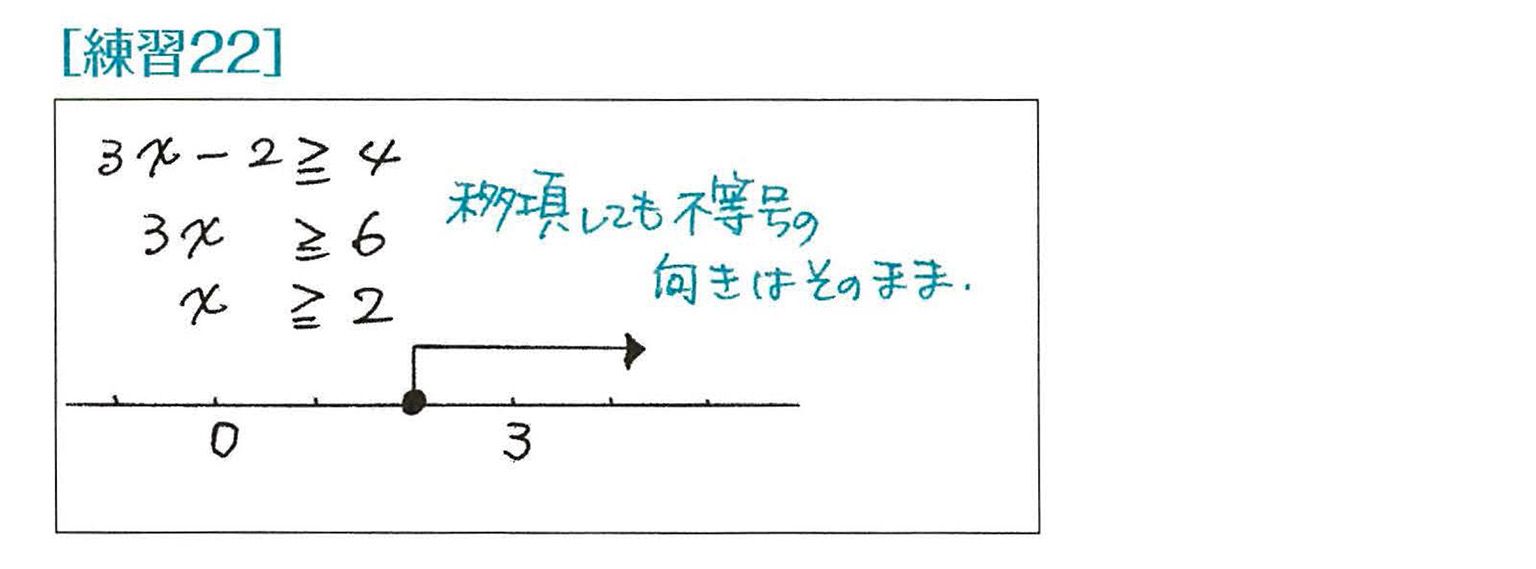 [練習22]
3x - 2 ≧ 4
3x ≧ 6
x ≧ 2
移項しても不等号の
向きはそのまま.
0 3